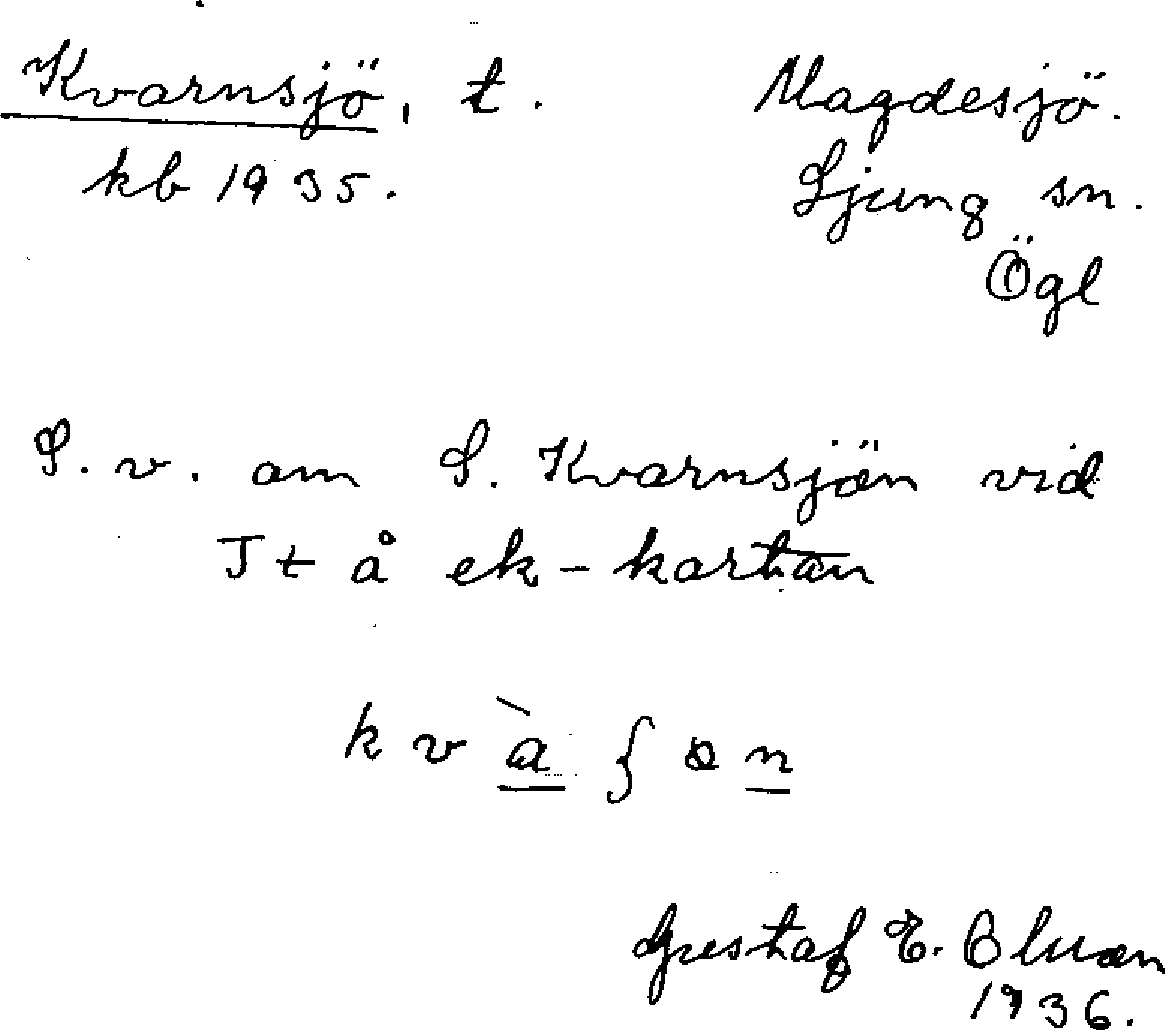 Kvarnsjö, t. Magdesjö.
kb 1935. Ljung sn.
Ögl
S. v. om S. Kvarnsjön vid
Jt å ek-kartan
Gustaf E. Bluan
1936.